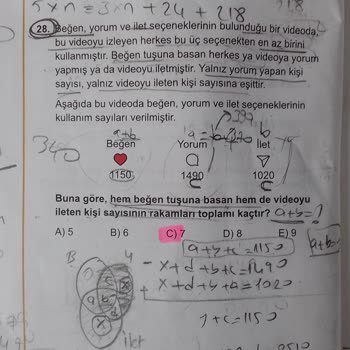 5 x n = 3 x n + 24 + 218
28. Beğen, yorum ve ilet seçeneklerinin bulunduğu bir videoda,
bu videoyu izleyen herkes bu üç seçenekten en az birini
kullanmıştır. Beğen tuşuna basan herkes ya videoya yorum
yapmış ya da videoyu iletmiştir. Yalnız yorum yapan kişi
sayısı, yalnız videoyu ileten kişi sayısına eşittir.
Aşağıda bu videoda beğen, yorum ve ilet seçeneklerinin
kullanım sayıları verilmiştir.
340
a+b
b
Beğen Yorum İlet
1150 1490 1020
Buna göre, hem beğen tuşuna basan hem de videoyu
ileten kişi sayısının rakamları toplamı kaçtır? a+b=?
A) 5 B) 6 C) 7 D) 8 E) 9
a+b+c=1150
a+b=
B
- x+d+b+c=1490
+ x+d+b+a=1020
a
b
x
ilet